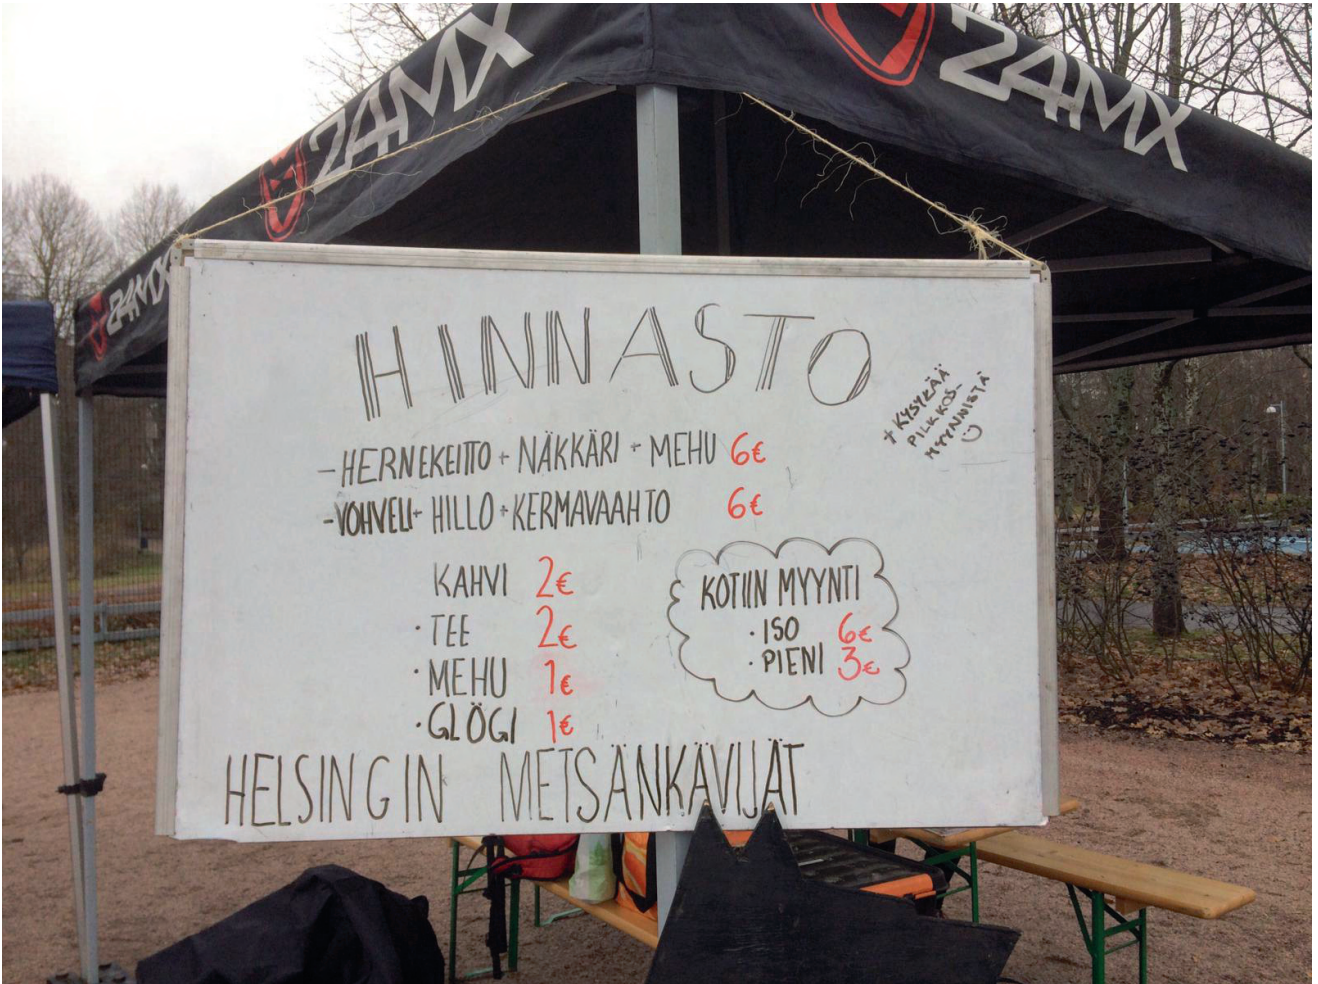 24MX
24MX
24MX
HINNASTO
+ KYSYKÄÄ
PILKKOS-
MYYNNISTÄ
☺
- HERNEKEITTO + NÄKKÄRI + MEHU 6€
- VOHVELI + HILLO + KERMAVAAHTO 6€
KAHVI 2€
· TEE 2€
· MEHU 1€
· GLÖGI 1€
KOTIIN MYYNTI
· ISO 6€
· PIENI 3€
HELSINGIN METSÄNKÄVIJÄT